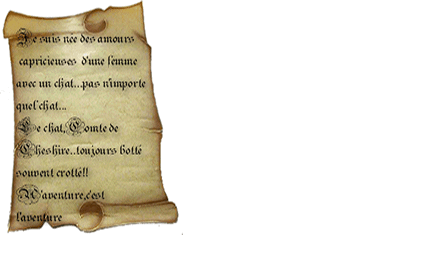 Je suis nee des amours
capricieuses d'une femme
avec un chat...pas n'importe
quel chat...
Le chat, Comte de
Cheshire..toujours botté
souvent crotté!!
L'aventure,c'est
l'aventure